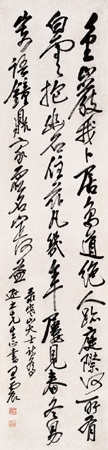 重巖我卜居鳥道絕人跡庭際何所有
白雲抱幽石住茲凡幾年屢見春冬易
寄語鐘鼎家虛名定何益
寒山大士詩
先生 王震